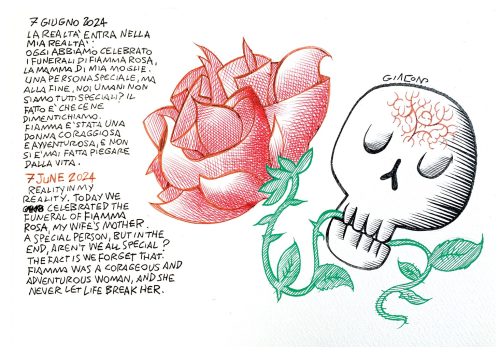 7 GIUGNO 2024
LA REALTA' ENTRA NELLA
MIA REALTA':
OGGI ABBIAMO CELEBRATO
I FUNERALI DI FIAMMA ROSA,
LA MAMMA DI MIA MOGLIE.
UNA PERSONA SPECIALE, MA
ALLA FINE, NOI UMANI NON
SIAMO TUTTI SPECIALI? IL
FATTO E' CHE CE NE
DIMENTICHIAMO.
FIAMMA E' STATA UNA
DONNA CORAGGIOSA
E AVVENTUROSA, E NON
SI E' MAI FATTA PIEGARE
DALLA VITA.
7 JUNE 2024
REALITY IN MY
REALITY. TODAY WE
CELEBRATED THE
FUNERAL OF FIAMMA
ROSA, MY WIFE'S MOTHER.
A SPECIAL PERSON, BUT IN THE
END, AREN'T WE ALL SPECIAL?
THE FACT IS WE FORGET THAT.
FIAMMA WAS A CORAGEOUS AND
ADVENTUROUS WOMAN, AND SHE
NEVER LET LIFE BREAK HER.
GIACON